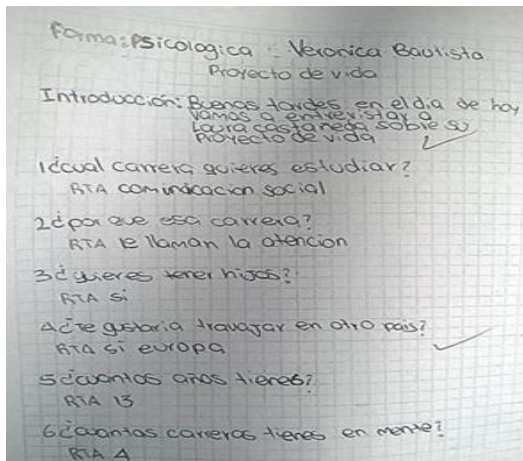 Forma:Psicologica - Veronica Bautista
Proyecto de vida
Introducción: Buenas tardes en el dia de hoy
vamos a entrevistar a
Laura castañeda sobre su
Proyecto de vida
1¿cual carrera quieres estudiar?
RTA comunicacion social
2¿por que esa carrera?
RTA le llaman la atencion
3¿quieres tener hijos?
RTA si
4¿te gustaria travajar en otro pais?
RTA si europa
5¿cuantos años tienes?
RTA 13
6¿cuantas carreras tienes en mente?
RTA 4